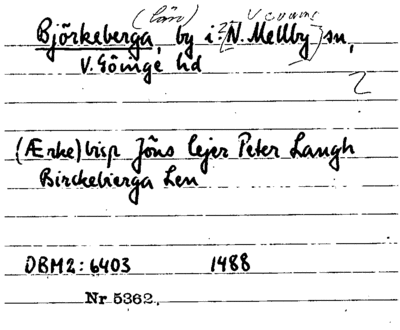 (län)
Björkeberga, by i [N. Mellby] sn,
V. Göinge hd
(Ærke)bisp Jöns lejer Peter Langh
Birckebierga Len
DBM2:6403 1488
Nr 5362.